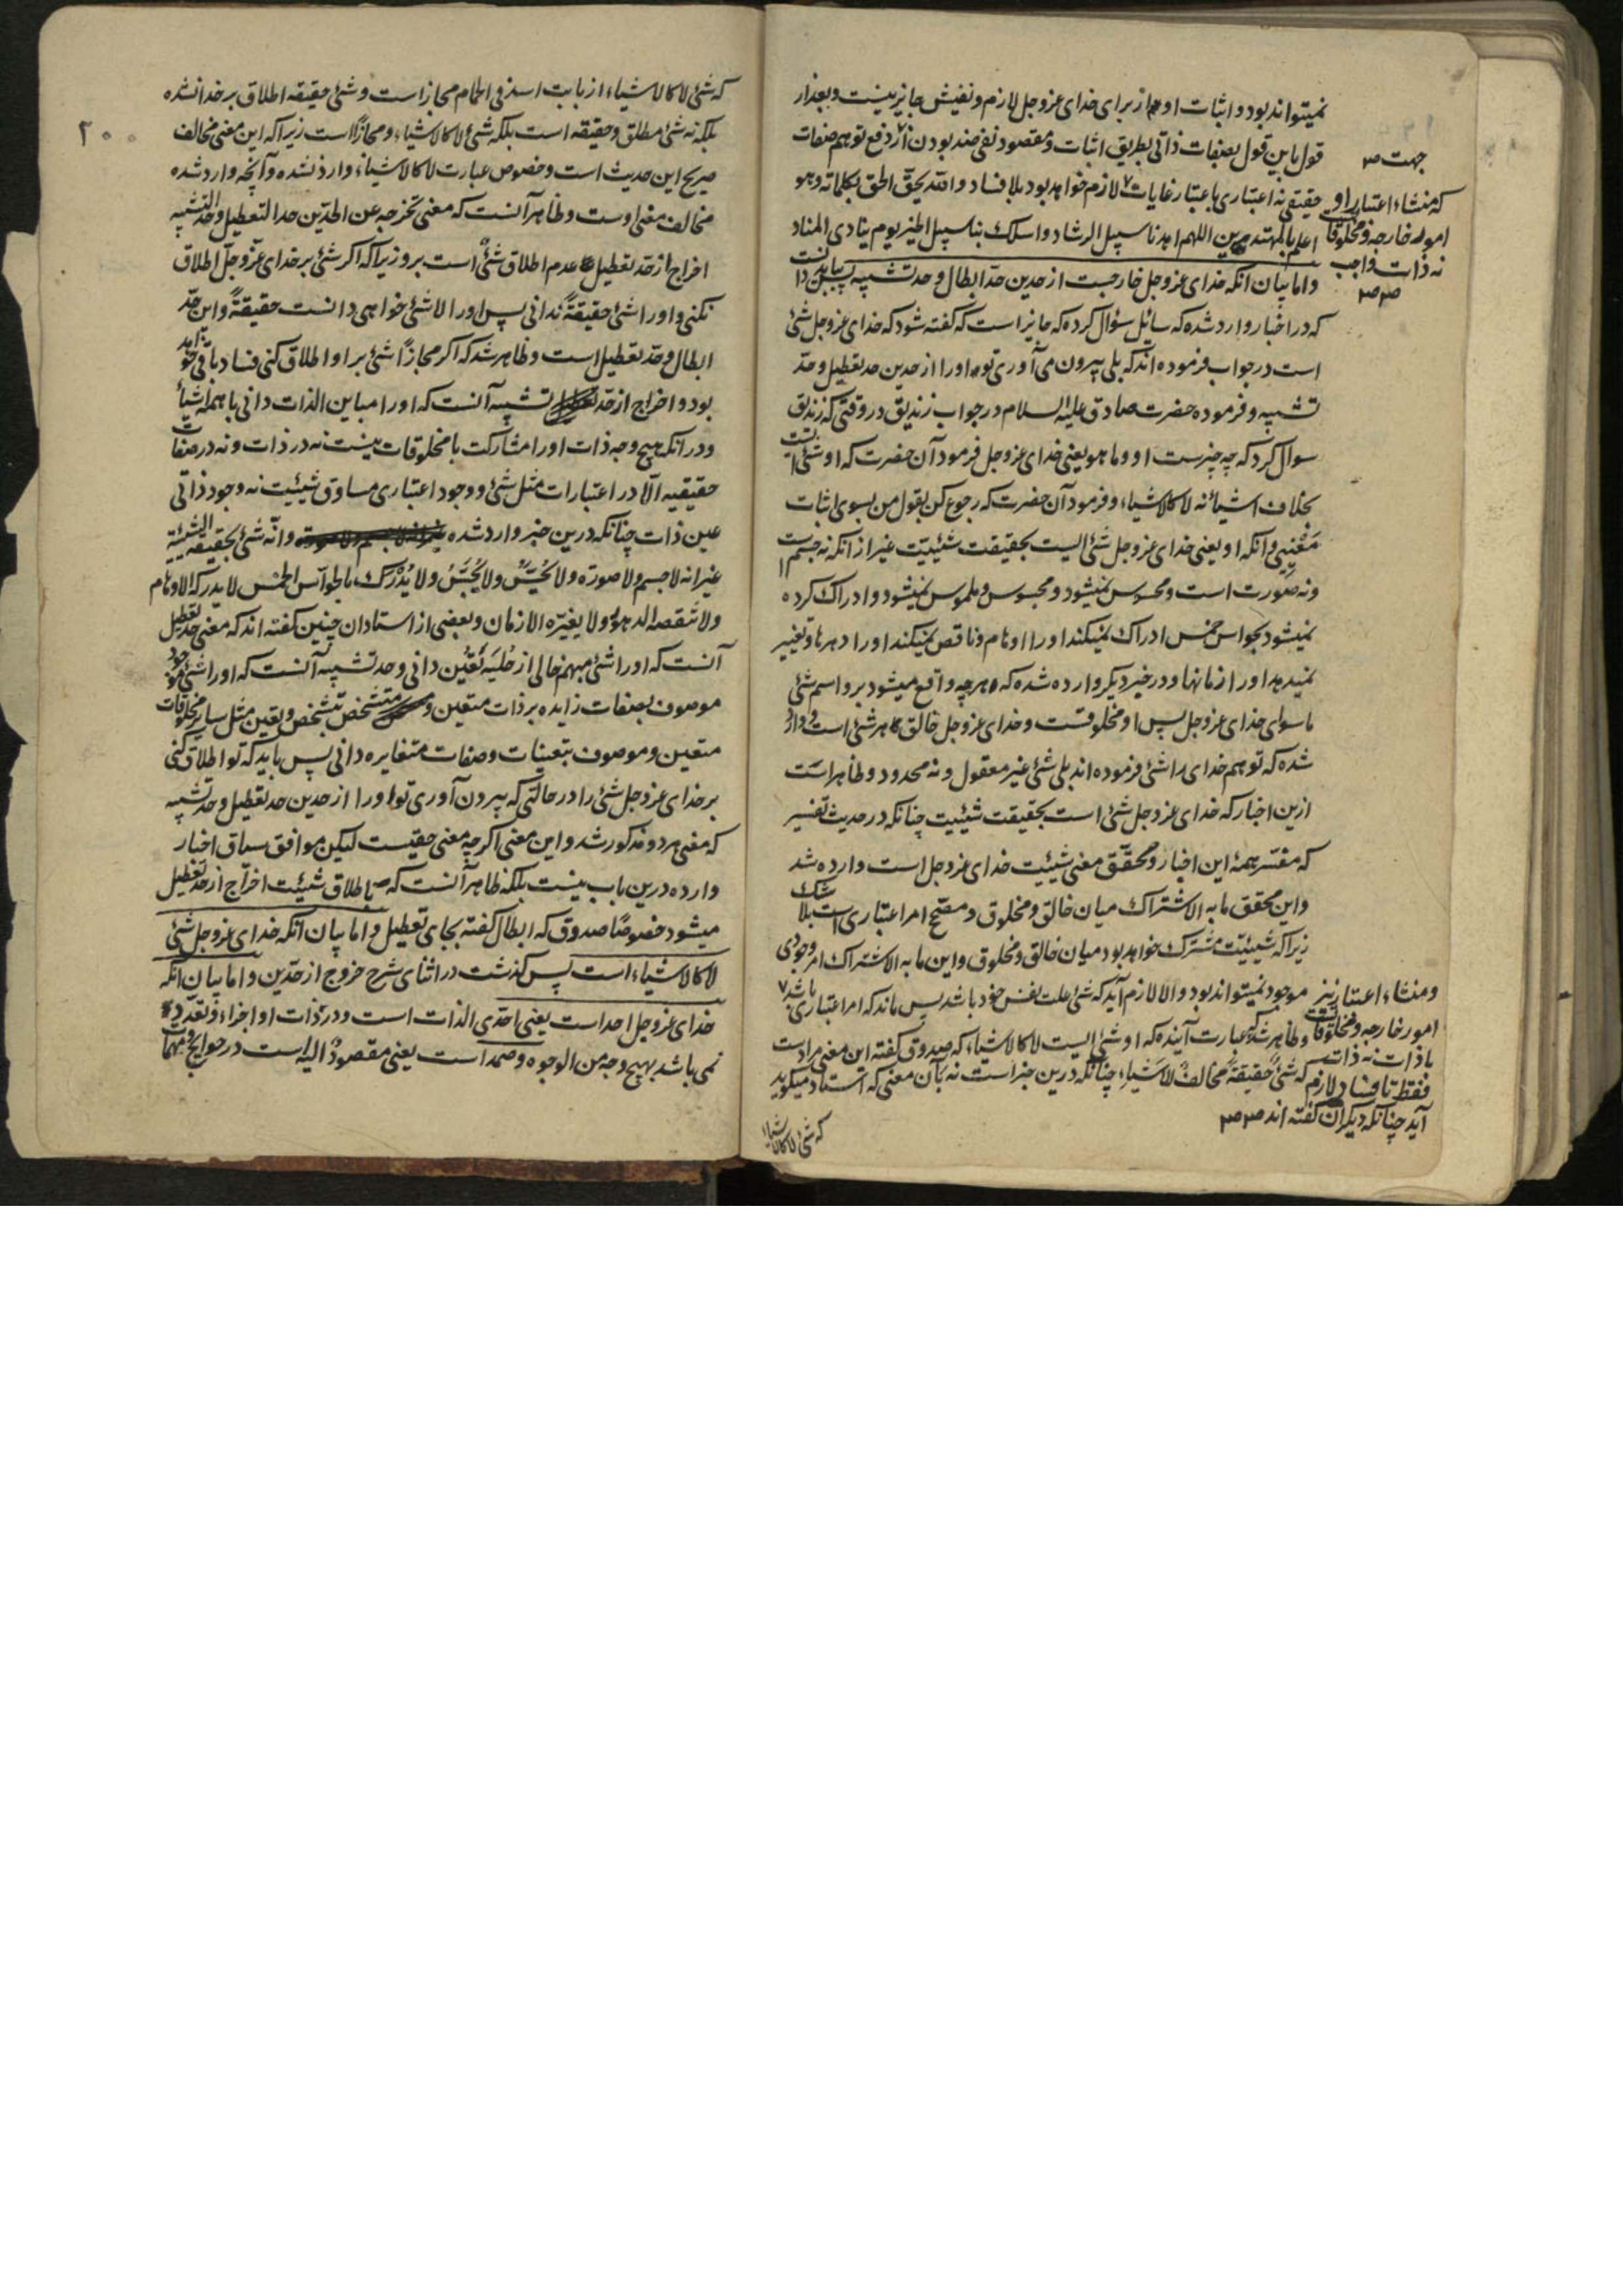 نمیتواند بود و اثبات او هم از برای خدای عزوجل لازم و نفیش جایز نیست و بعد از
قول باین قول بصفات ذاتی بطریق اثبات و مقصود نفی ضد بودن از دفع توهم صفات
حقیقی نه اعتباری باعتبار غایات لازم خواهد بود بلا فساد والله یحق الحق بکلماته وهو
اعلم بالمهتدین اللهم اهدنا سبیل الرشاد واسلک بنا سبیل الخیر یوم ینادی المناد
و اما بیان آنکه خدای عزوجل خارجست از حدین حد ابطال و حد تشبیه پس بباید دانست
که در اخبار وارد شده که سائل سؤال کرده که جایز است که گفته شود که خدای عزوجل شئ
است در جواب فرموده اند که بلی بیرون می آوری تو او را از حدین حد تعطیل و حد
تشبیه و فرموده حضرت صادق علیه السلام در جواب زندیق در وقتی که زندیق
سوال کرد که چه چیزست او و ما هو یعنی خدای عزوجل فرمود آن حضرت که او شئ است
بخلاف اشیا نه لا کالاشیاء و فرمود آن حضرت که رجوع کن بقول من بسوی اثبات
معنیی و آنکه او یعنی خدای عزوجل شئ ایست بحقیقت شیئیت غیر از آنکه نه جسم است
و نه صورت است و محسوس نمیشود و مجسوس و ملموس نمیشود و ادراک کرده
نمیشود بحواس خمس ادراک نمیکند او را اوهام و ناقص نمیکند او را دهرها و تغییر
نمیدهد او را زمانها و در خبر دیگر وارده شده که هرچه واقع میشود برو اسم شئ
ماسوای خدای عزوجل پس او مخلوقست و خدای عزوجل خالق هر شئ است و وارد
شده که توهم خدای را شئ فرموده اند بلی شئ غیر معقول و نه محدود و ظاهر است
ازین اخبار که خدای عزوجل شئ است بحقیقت شیئیت چنانکه در حدیث تفسیر
که مفسر همهٔ این اخبار و محقق معنی شیئیت خدای عزوجل است وارده شد
و این محقق ما به الاشتراک میان خالق و مخلوق و مصحح امر اعتباری است بلا شک
زیرا که شیئیت مشترک خواهد بود میان خالق و مخلوق و این ما به الاشتراک امر وجودی
موجود نمیتواند بود و الا لازم آید که شئ علت نفس خود باشد پس ماند که امر اعتباری باشد
و ظاهر شد که عبارت آینده که او شئ ایست لا کالاشیاء که صدوق گفته این معنی مراد است
که شئ حقیقة مخالف للاشیاء چنانکه درین خبر است نه بآن معنی که استاد میگوید
که شئ لا کالاشیاء
جهت
که منشاء اعتبار او
امور خارجه و مخلوقات
نه ذات واجب
و منشاء اعتبار نیز
امور خارجه و مخلوقات
با ذات نه ذات
فقط تا فساد لازم
آید چنانکه دیگران گفته اند
۲۰۰
که شئ لا کالاشیاء از بابت اسد فی الحمام مجاز است و شئ حقیقه اطلاق بر خدا نشده
بلکه نه شئ مطلق و حقیقه است بلکه شئ لا کالاشیاء و مجازا است زیرا که این معنی مخالف
صریح این حدیث است و خصوص عبارت لا کالاشیاء وارد نشده و آنچه وارد شده
مخالف معنی اوست و ظاهر آنست که معنی تخرجه عن الحدین حد التعطیل وحد التشبیه
اخراج از حد تعطیل عدم اطلاق شئ است برو زیرا که اگر شئ بر خدای عزوجل اطلاق
نکنی و او را شئ حقیقة ندانی پس او را لا شئ خواهی دانست حقیقة و این حد
ابطال و حد تعطیل است و ظاهر شد که اگر مجازا شئ بر او اطلاق کنی فساد باقی خواهد
بود و اخراج از حد تشبیه آنست که او را مباین الذات دانی با همه اشیا
و در آنکه بهیچ وجه ذات او را مشارکت با مخلوقات نیست نه در ذات و نه در صفات
حقیقیه الا در اعتبارات مثل شئ و وجود اعتباری مساوق شیئیت نه وجود ذاتی
عین ذات چنانکه درین خبر وارد شده وانه شئ بحقیقة الشیئیة
غیر انه لا جسم ولا صورة ولا یحس ولا یجس ولا یدرک بالحواس الخمس لا یدرکه الاوهام
ولا تنقصه الدهور ولا یغیره الازمان و بعضی از استادان چنین گفته اند که معنی حد تعطیل
آنست که او را شئ مبهم خالی از حلیه تعین دانی و حد تشبیه آنست که او را شئ موجود
موصوف بصفات زایده بر ذات متعین و متشخص بتشخص و تعین مثل سایر مخلوقات
متعین و موصوف بتعینات و صفات متغایره دانی پس باید که تو اطلاق کنی
بر خدای عزوجل شئ را در حالتی که بیرون آوری تو او را از حدین حد تعطیل و حد تشبیه
که معنی هر دو مذکور شد و این معنی اگرچه معنی حقیست لیکن موافق سیاق اخبار
وارده درین باب نیست بلکه ظاهر آنست که باطلاق شیئیت اخراج از حد تعطیل
میشود خصوصا صدوق که ابطال گفته بجای تعطیل و اما بیان آنکه خدای عزوجل شئ
لا کالاشیاء است پس گذشت در اثنای شرح خروج از حدین و اما بیان آنکه
خدای عزوجل احد است یعنی احدی الذات است و در ذات او اجزاء و تعدد
نمی باشد بهیچ وجه من الوجوه و صمد است یعنی مقصود الیه است در حوایج و مهمات